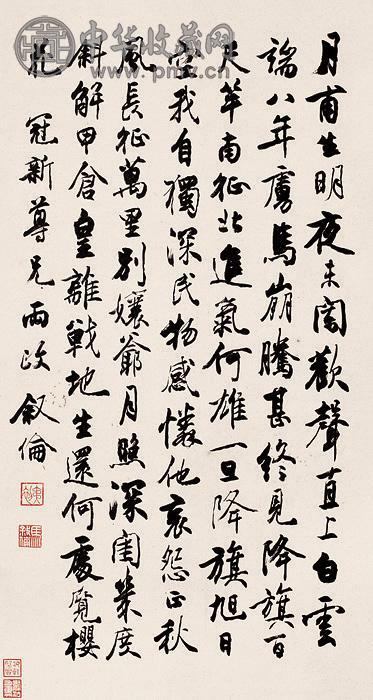 中华收藏网
月甫生明夜未闌歡聲直上白雲
端八年虜馬崩騰甚終見降旗百
尺竿南征北進氣何雄一旦降旗旭日
空我自獨深民物感憐他哀怨正秋
風長征萬里別孃爺月照深閨幾度
斜解甲倉皇離戰地生還何處覓櫻
花 冠新尊兄兩政 叙倫